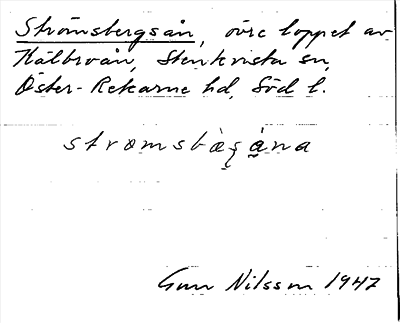 Strömsbergsån, övre loppet av
Hålbroån, Stenkvista sn,
Öster-Rekarne hd, Söd l.
stromsbæ̀ꞔåna
Gun Nilsson 1947